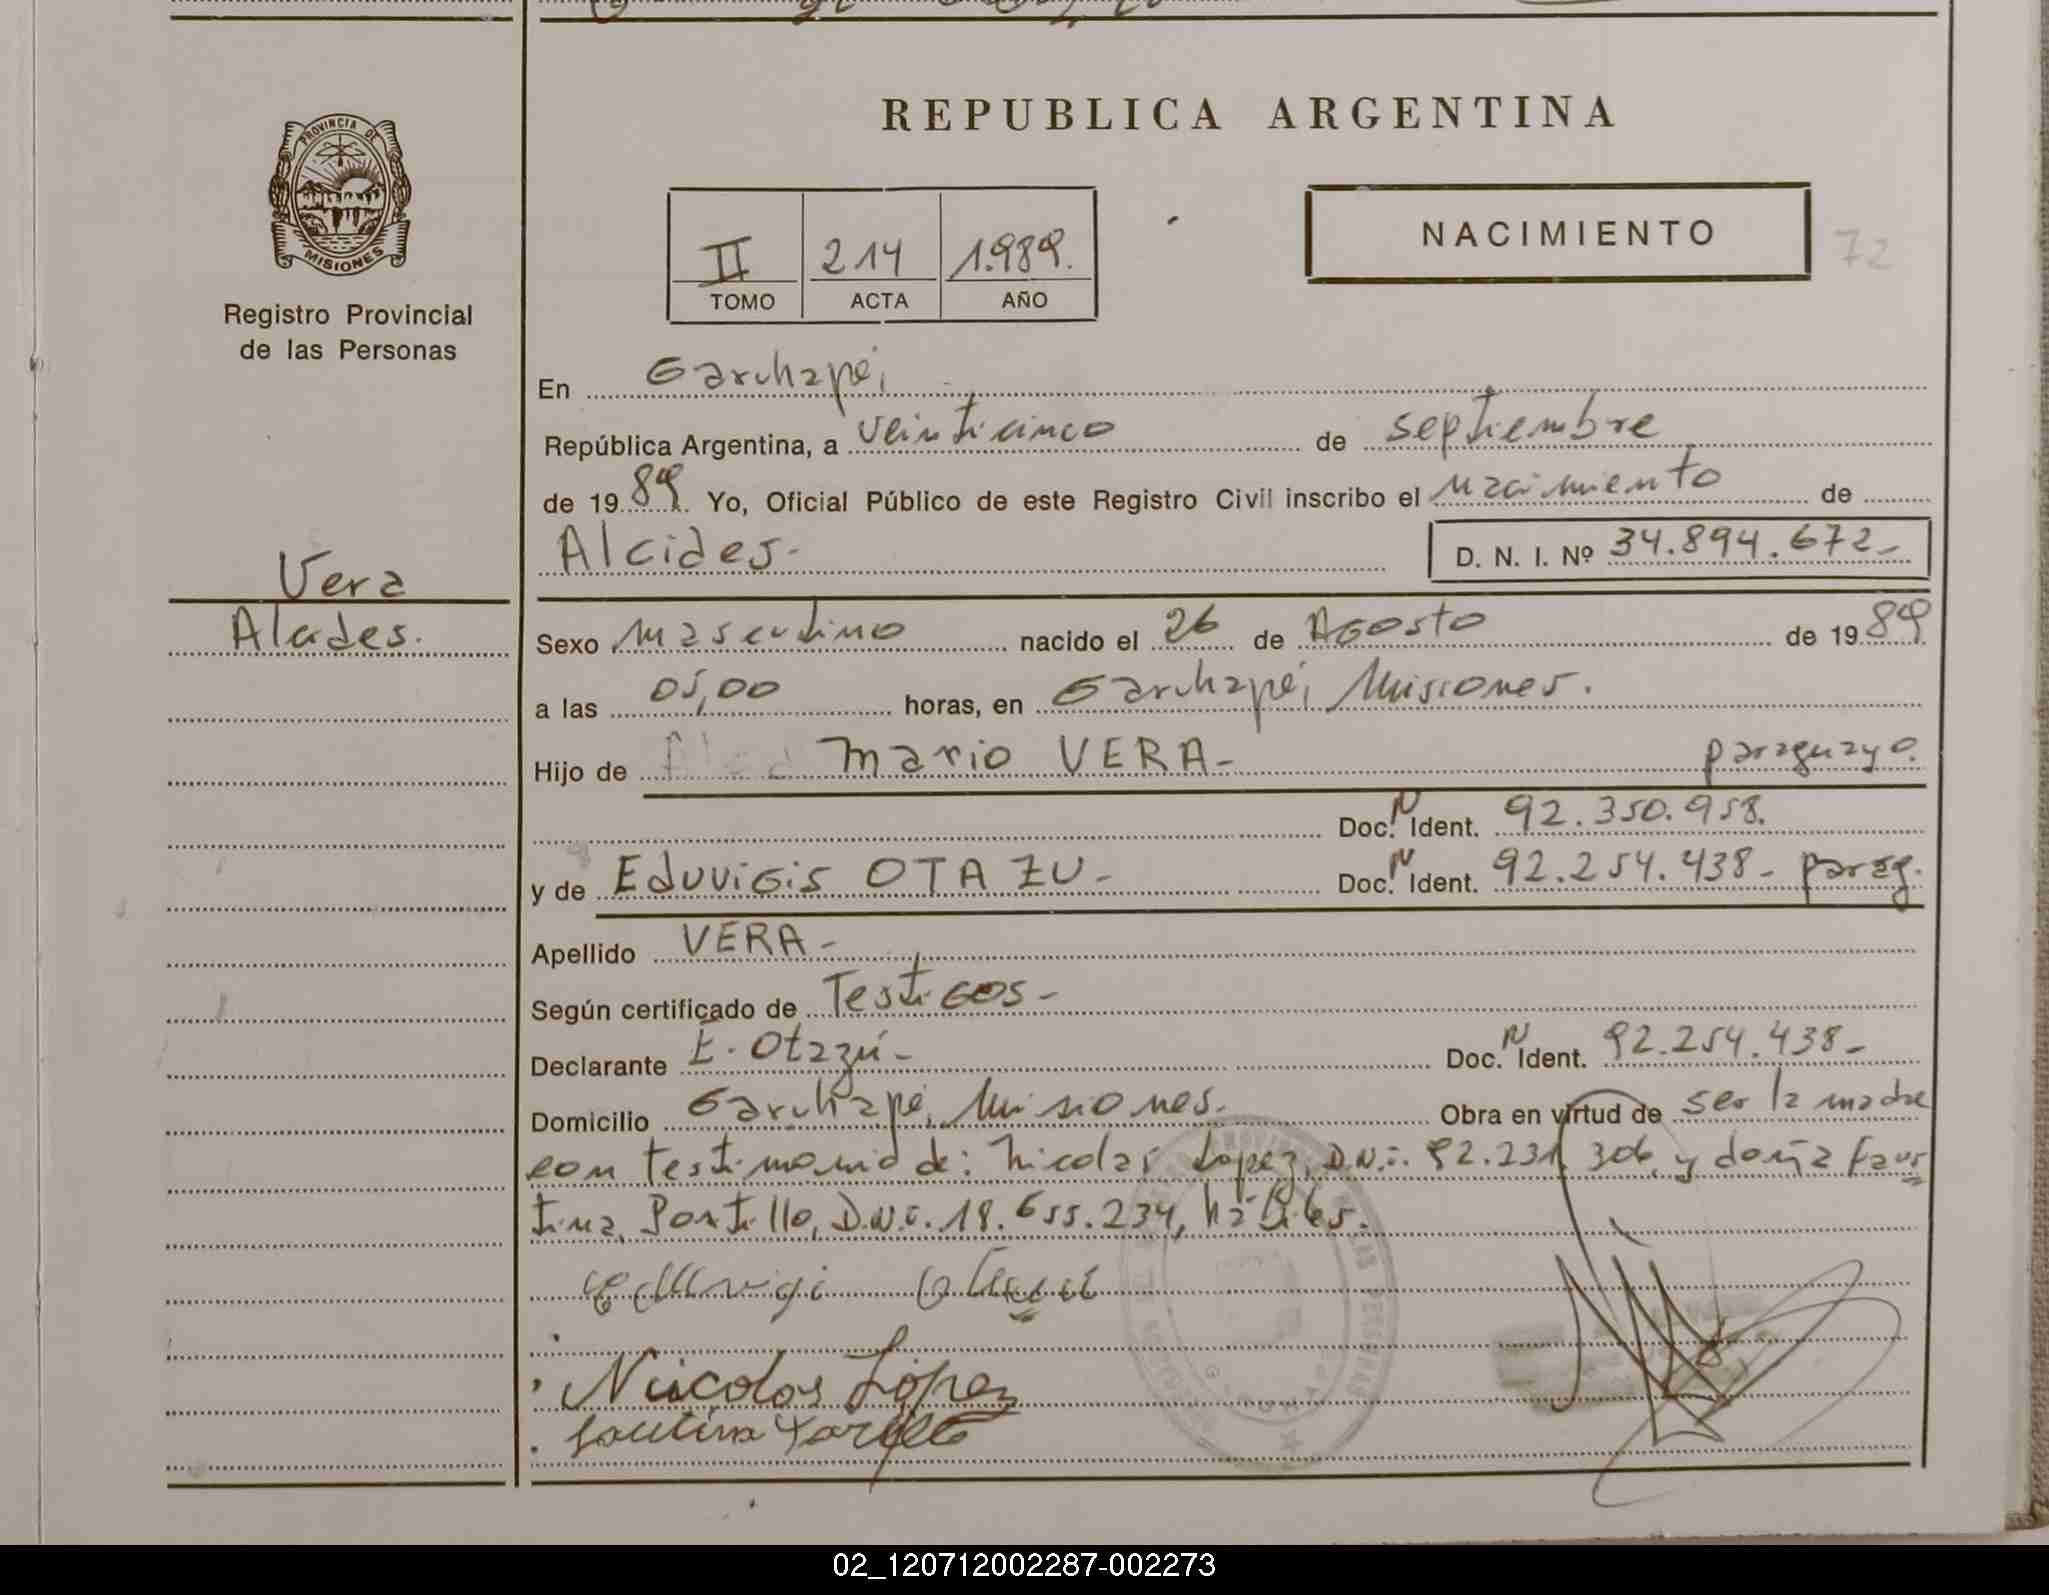 PROVINCIA DE
MISIONES
Registro Provincial
de las Personas
Vera
Alcides.
REPUBLICA ARGENTINA
II 214 1.989.
TOMO ACTA AÑO
NACIMIENTO
72
En Garuhapé,
República Argentina, a veinticinco de septiembre
de 1989. Yo, Oficial Público de este Registro Civil inscribo el nacimiento de
Alcides- D. N. I. Nº 34.894.672-
Sexo masculino nacido el 26 de Agosto de 1989
a las 05,00 horas, en Garuhapé, Misiones.
Hijo de Mario VERA- paraguayo.
Doc. N Ident. 92.350.958.
y de Eduvigis OTAZU- Doc. N Ident. 92.254.438- parag.
Apellido VERA-
Según certificado de Testigos-
Declarante E. Otazú- Doc. N Ident. 92.254.438-
Domicilio Garuhapé, Misiones. Obra en virtud de ser la madre
con testimonio de: Nicolás López, D.N.i. 92.231.306, y doña Faus
tina Portillo, D.N.i. 18.655.234, hábiles.
Nicolas López
02_120712002287-002273